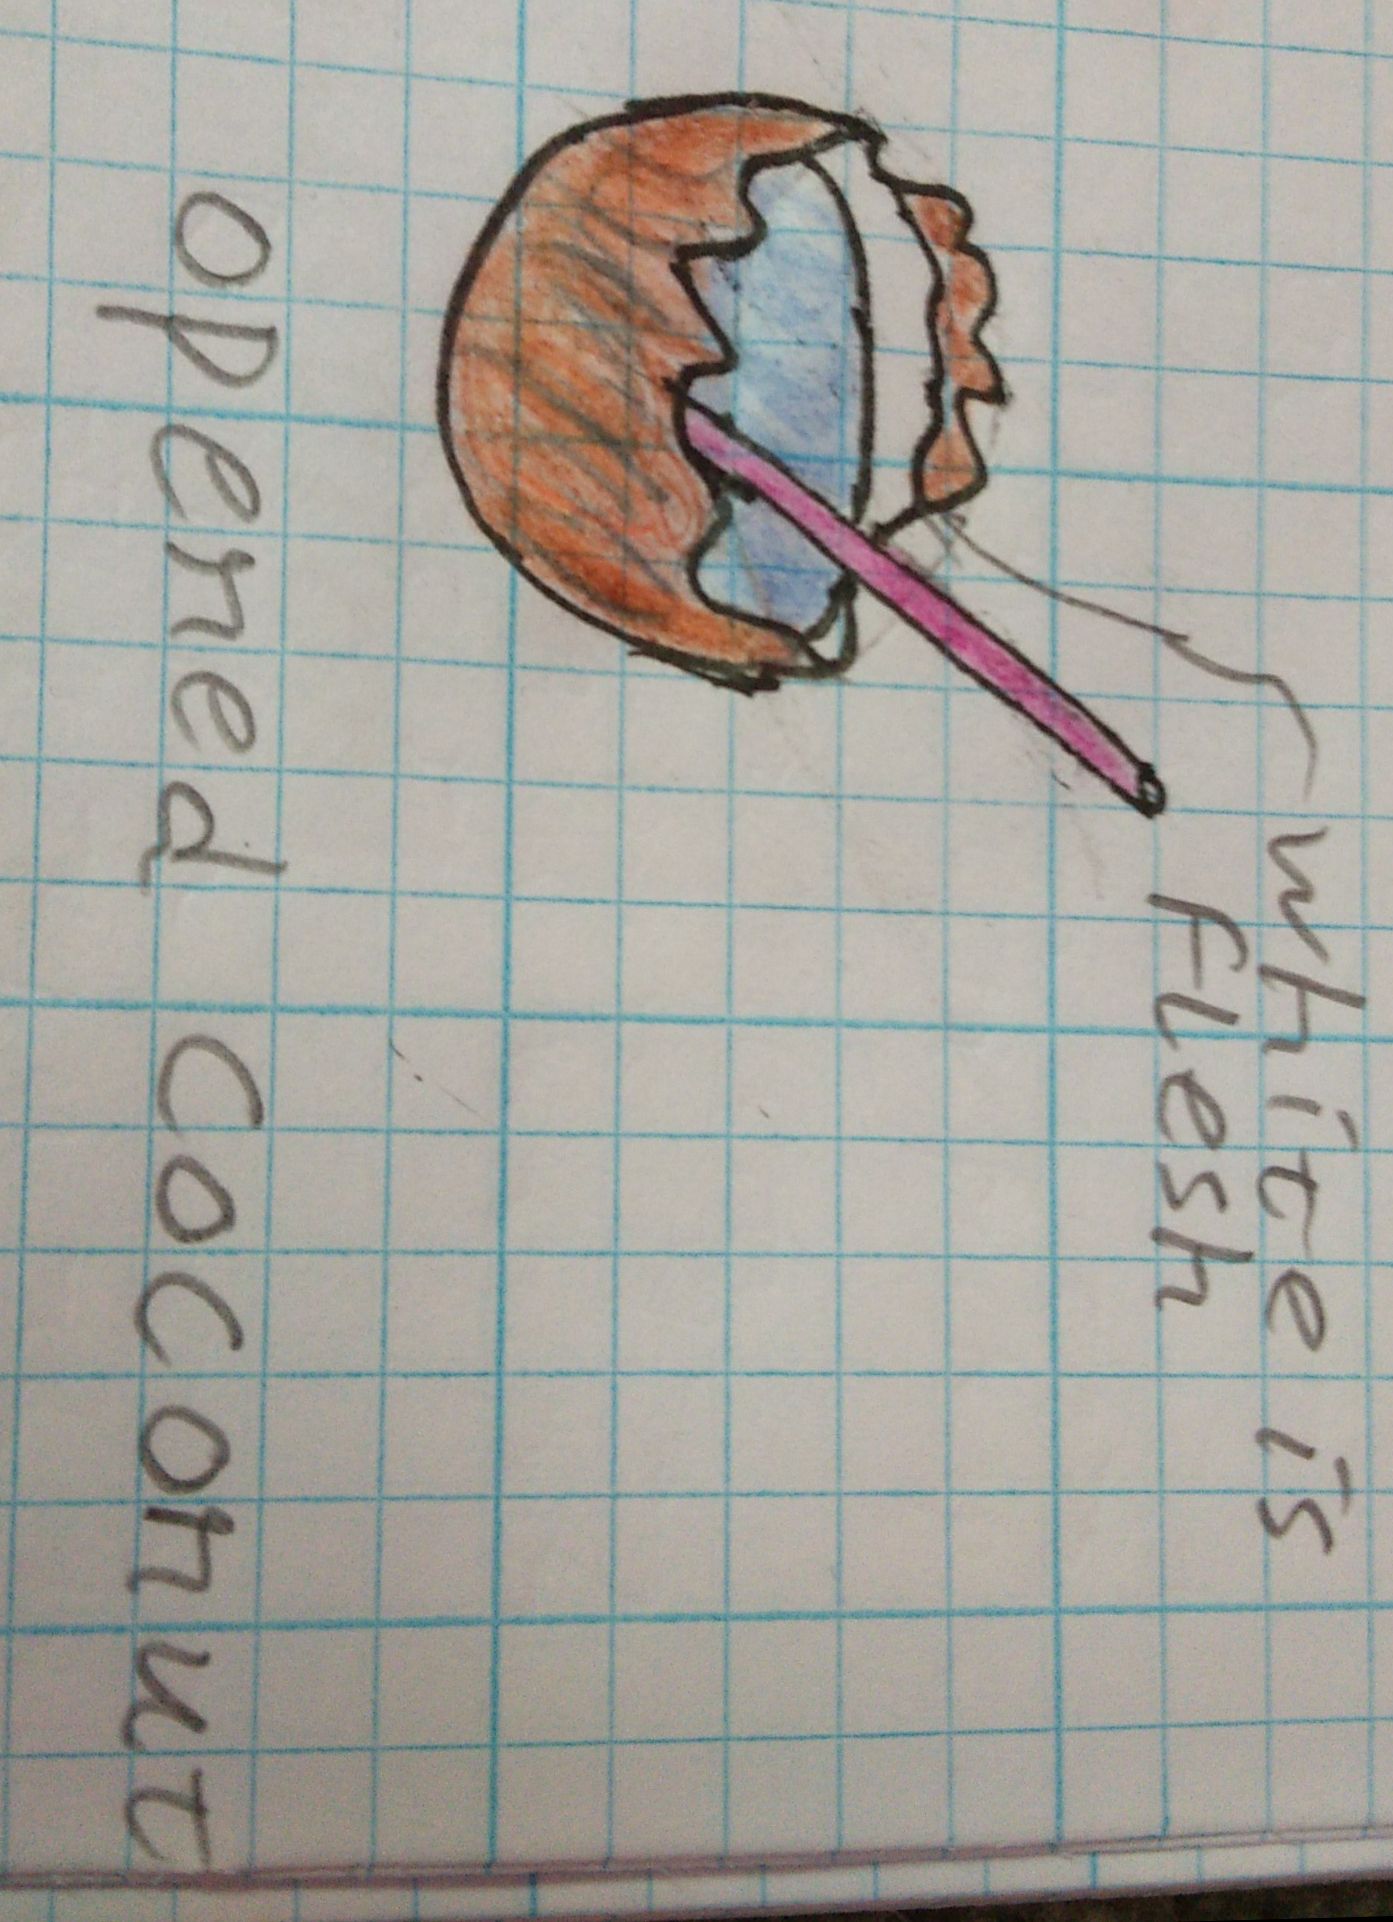 white is
flesh
opened coconut